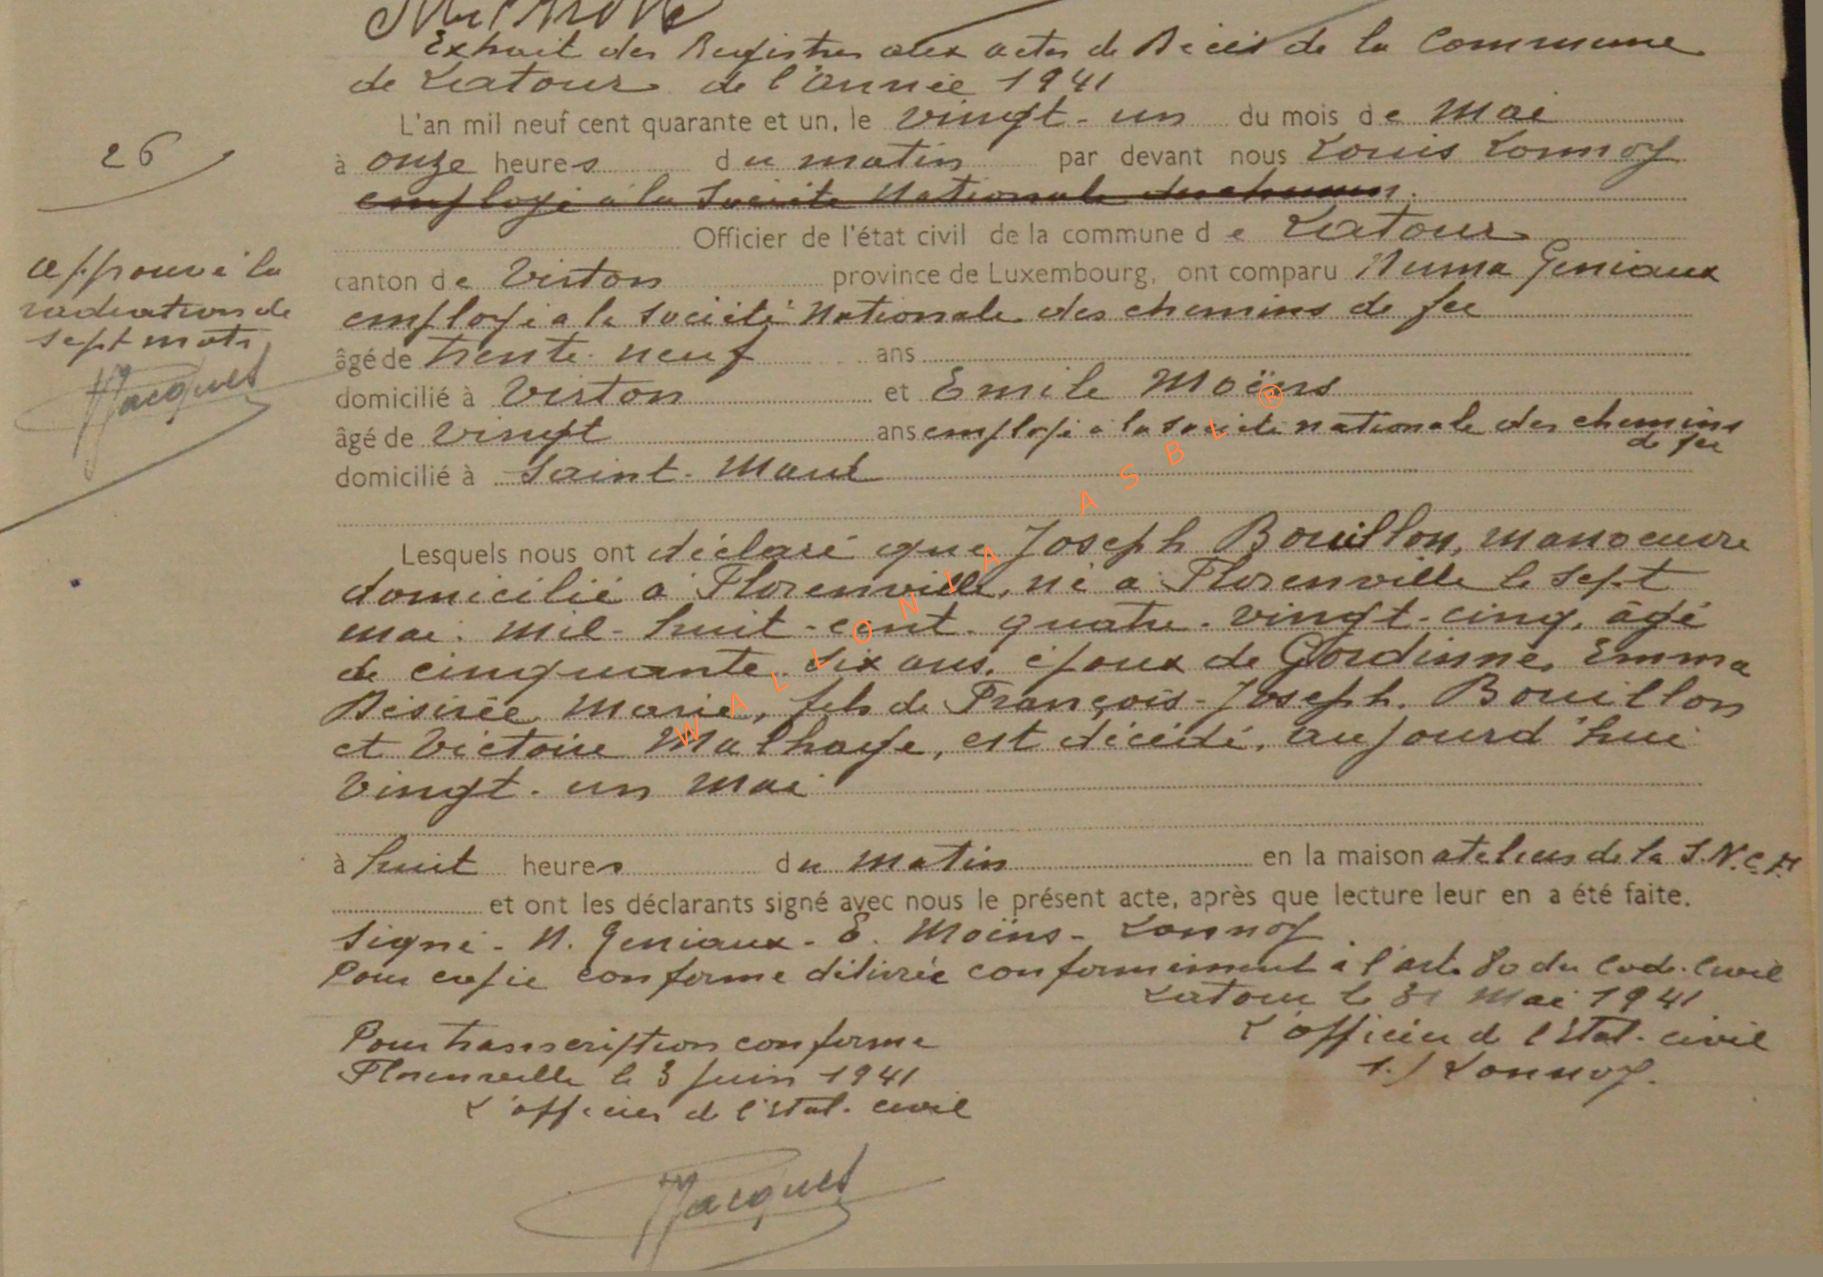 Extrait des Registres aux actes de Décès de la Commune
de Latour de l'année 1941
L'an mil neuf cent quarante et un, le vingt-un du mois de Mai
26
à onze heures du matin par devant nous Louis Lonnoy
employé à la Société Nationale des chemins
Officier de l'état civil de la commune de Latour
approuvé la
radiation de
sept mots
Jacques
canton de Virton province de Luxembourg, ont comparu Numa Geniaux
employé a la Société Nationale des chemins de fer
âgé de trente-neuf ans
domicilié à Virton et Emile Moëns
âgé de vingt ans employé à la société nationale des chemins
de fer
domicilié à Saint-Mard
Lesquels nous ont déclaré que Joseph Bouillon, manoeuvre
domicilié à Florenville, né à Florenville le sept
mai mil-huit-cent-quatre-vingt-cinq, âgé
de cinquante-six ans, époux de Gordinne, Emma
Désirée Marie, fils de François-Joseph Bouillon
et Victoire Malhaye, est décédé, aujourd'hui
vingt-un mai
à huit heures du matin en la maison ateliers de la S.N.C.F.
et ont les déclarants signé avec nous le présent acte, après que lecture leur en a été faite.
Signé - N. Geniaux - E. Moëns - Lonnoy
Pour copie conforme délivrée conformément à l'art. 80 du Code Civil
Latour le 31 Mai 1941
L'officier de l'Etat-civil
s./ Lonnoy.
Pour transcription conforme
Florenville le 3 Juin 1941
L'officier de l'Etat-civil
Jacques
WALLONIA ASBL ®